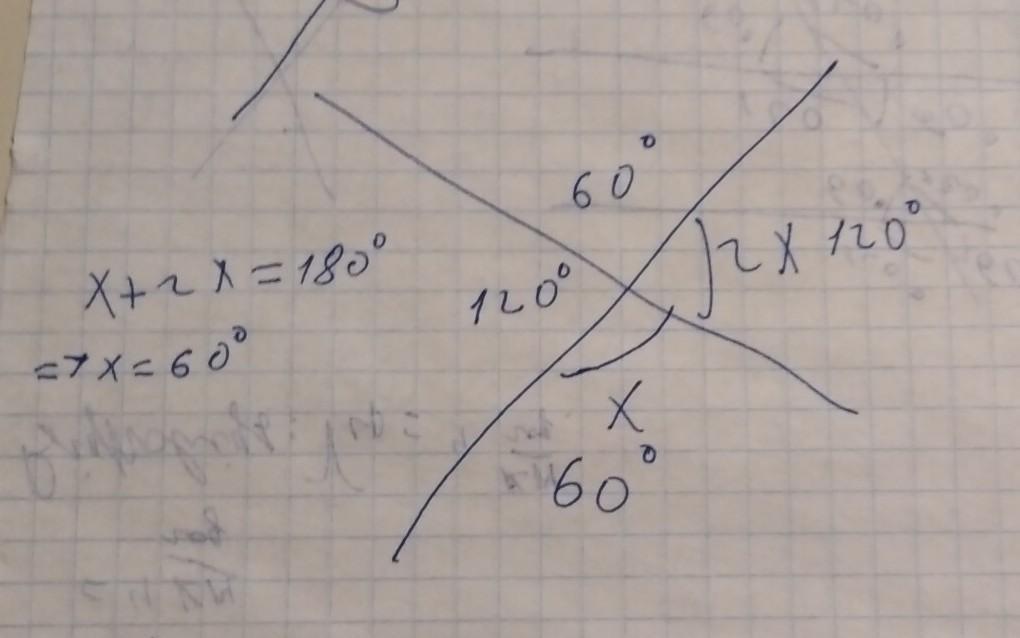 60°
2x 120°
x + 2x = 180°
120°
=> x = 60°
x
60°